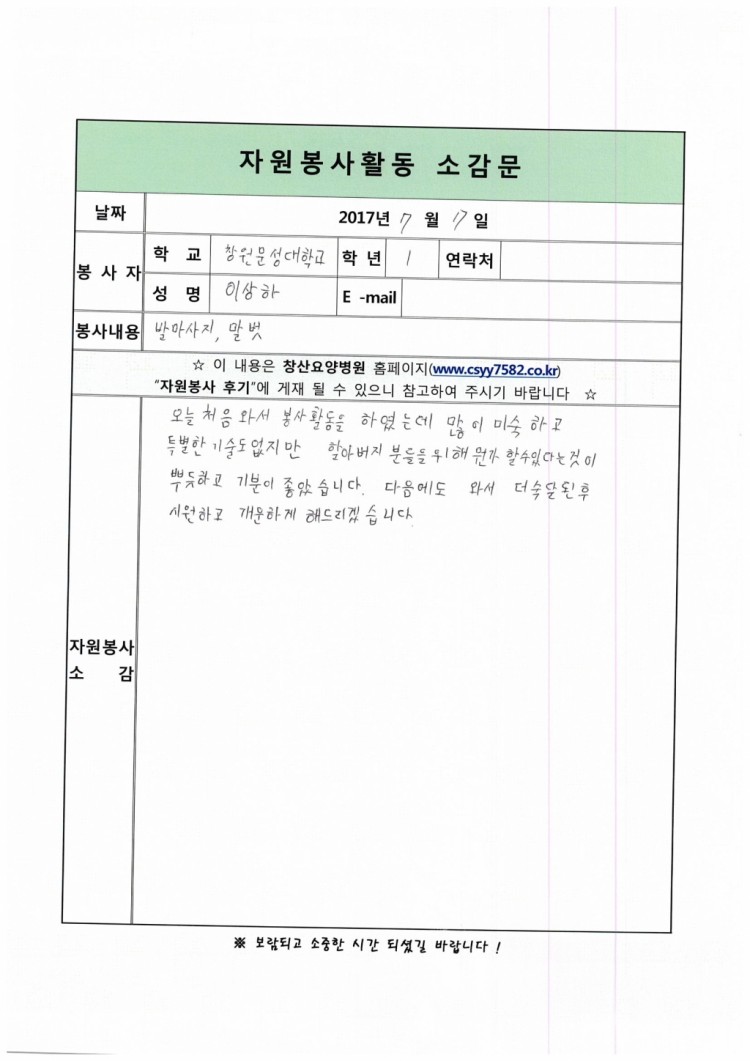 자원봉사활동 소감문
날짜 2017년 7 월 17 일
봉 사 자 학 교 창원문성대학교 학 년 1 연락처
성 명 이상하 E -mail
봉사내용 발마사지, 말벗
☆ 이 내용은 창산요양병원 홈페이지(www.csyy7582.co.kr)
"자원봉사 후기"에 게재 될 수 있으니 참고하여 주시기 바랍니다 ☆
오늘 처음 와서 봉사활동을 하였는데 많이 미숙하고
특별한 기술도없지만 할아버지 분들을 위해 뭔가 할수있다는것이
뿌듯하고 기분이 좋았습니다. 다음에도 와서 더숙달된후
시원하고 개운하게 해드리겠습니다.
자원봉사
소 감
※ 보람되고 소중한 시간 되셨길 바랍니다 !